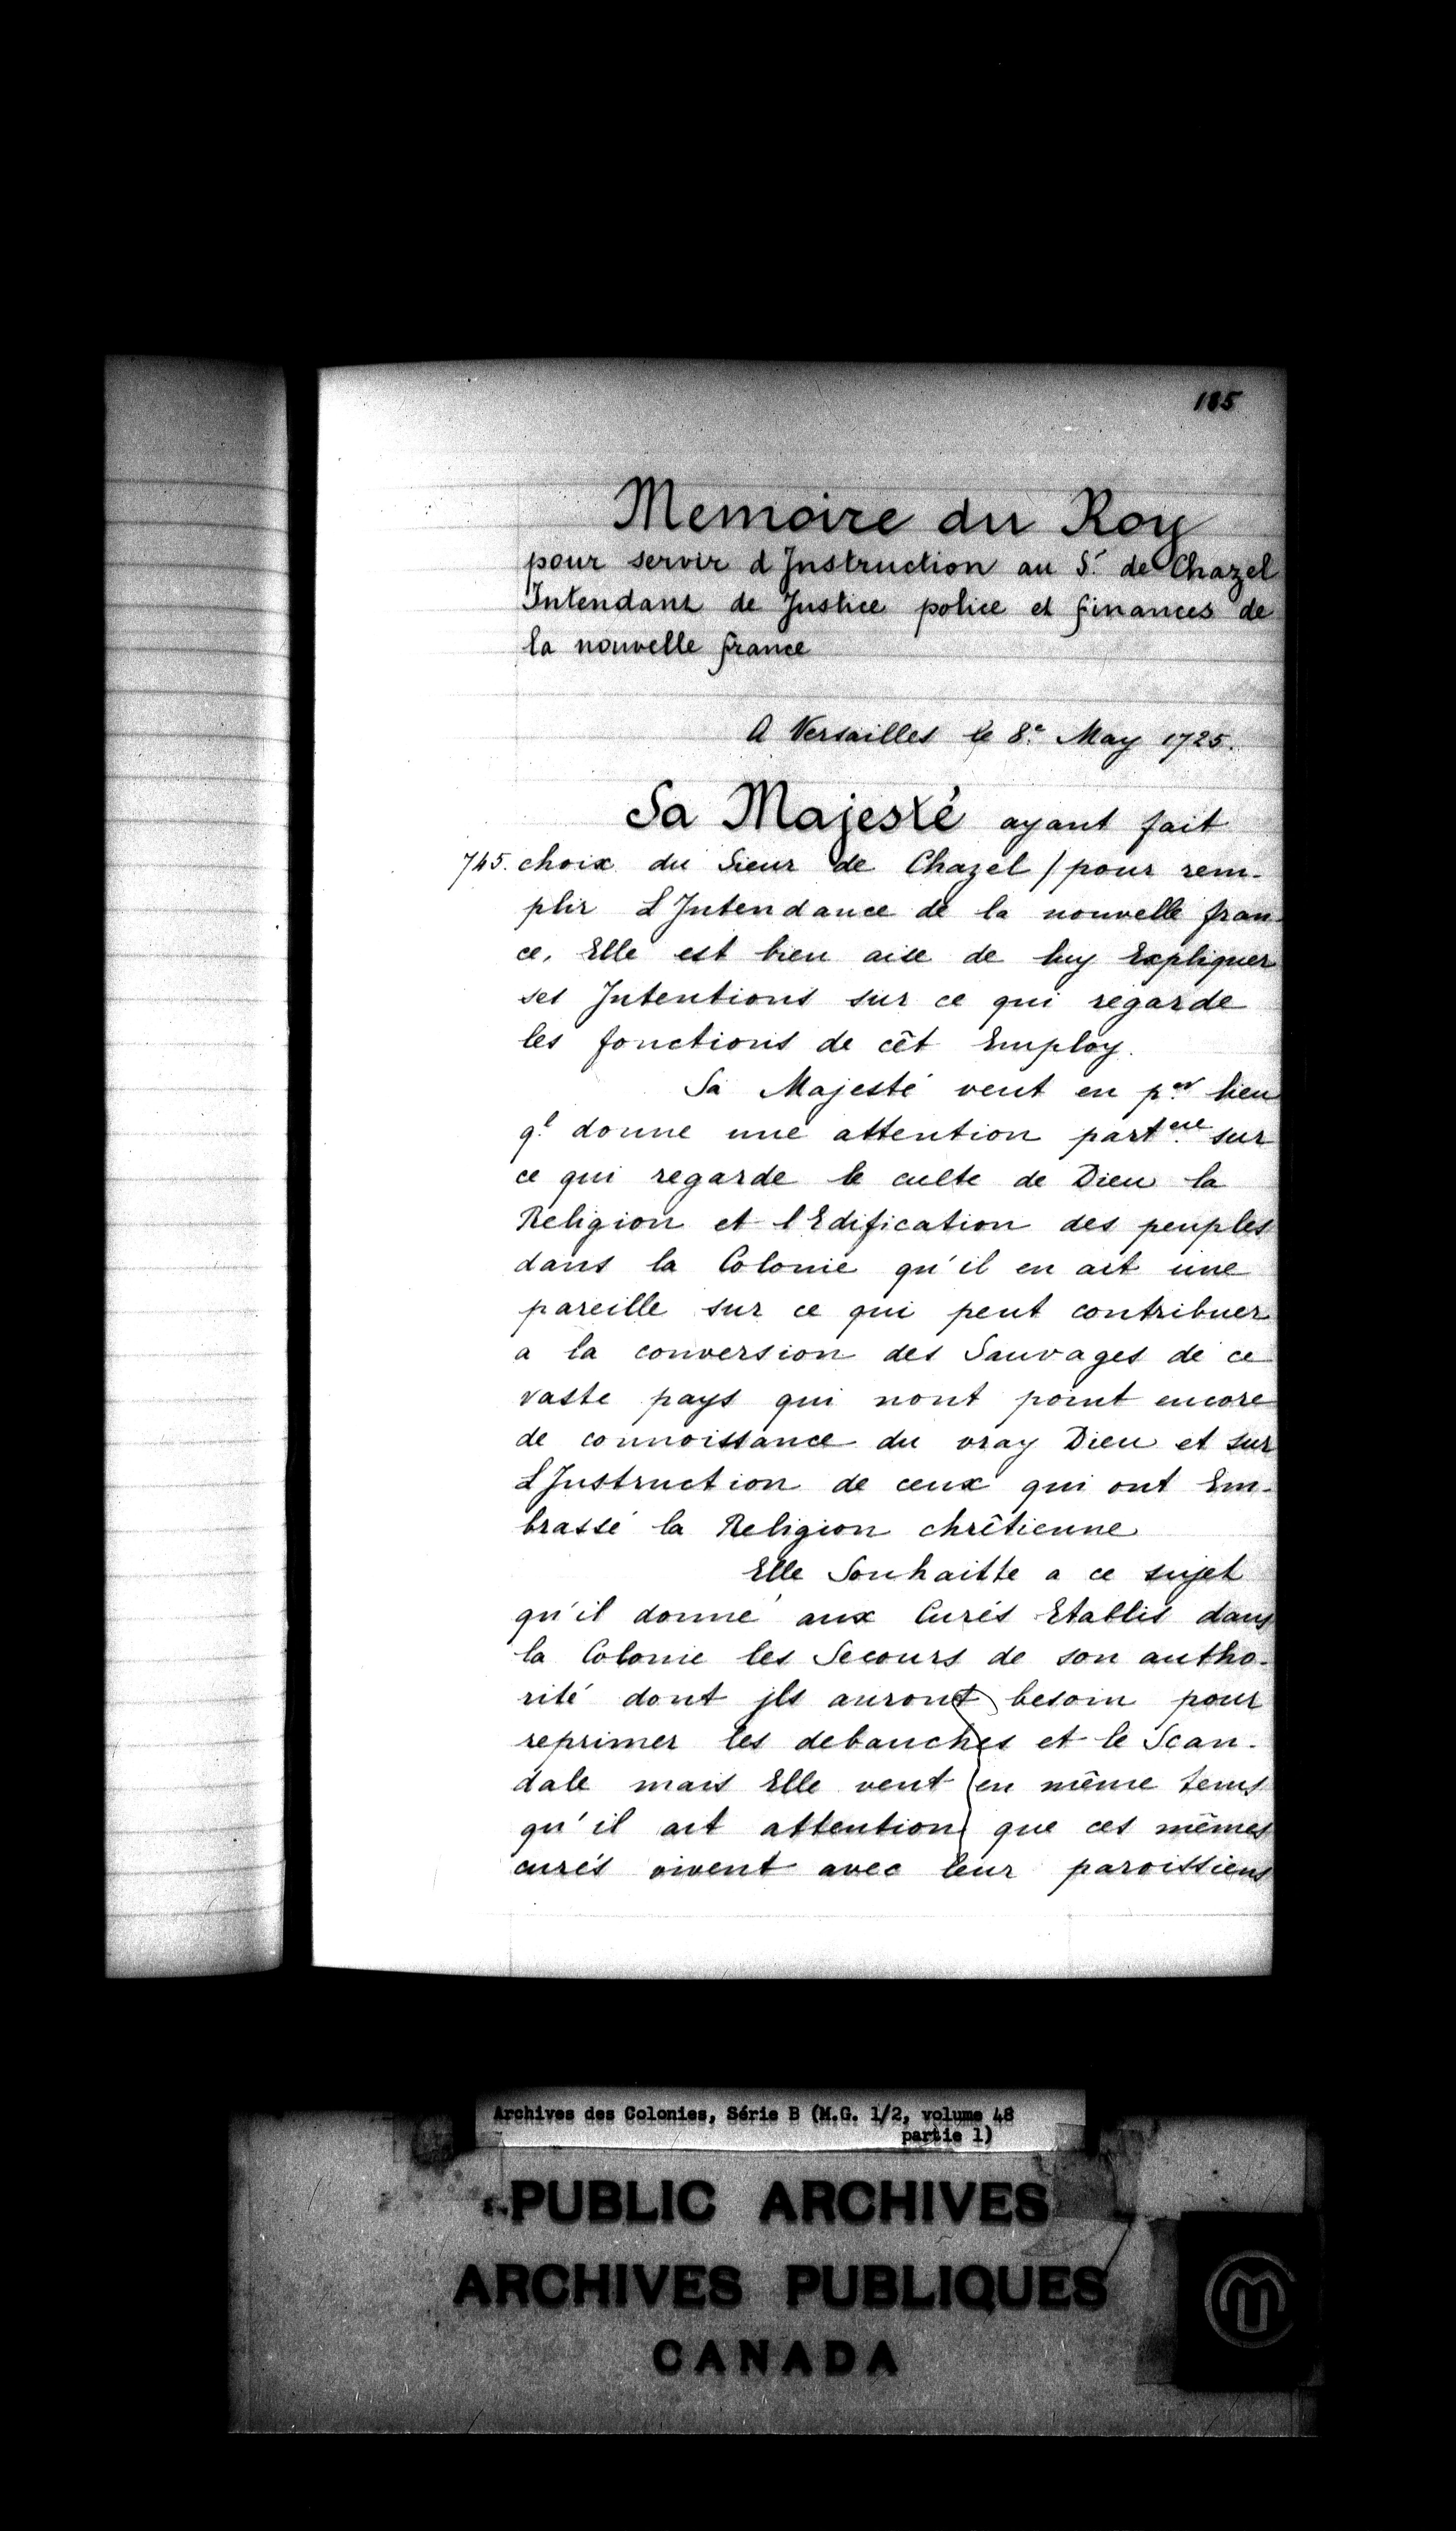 185
Memoire du Roy
pour servir d Instruction au S.r de Chazel
Intendant de Justice police et finances de
la nouvelle france
A Versailles le 8.e May 1725.
Sa Majesté ayant fait
745. choix du Sieur de Chazel / pour rem-
plir L Intendance de la nouvelle fran-
ce, Elle est bien aise de luy Expliquer
ses Intentions sur ce qui regarde
les fonctions de cêt Employ.
Sa Majesté veut en p.er lieu
q.l donne une attention part.ere sur
ce qui regarde le culte de Dieu la
Religion et l Edification des peuples
dans la Colonie qu'il en ait une
pareille sur ce qui peut contribuer
a la conversion des Sauvages de ce
vaste pays qui nont point encore
de connoissance du vray Dieu et sur
L Instruction de ceux qui ont Em-
brassé la Religion chrêtienne
Elle Souhaitte a ce sujet
qu'il donne aux Curés Etablis dans
la Colonie les Secours de son autho-
rité dont jls auront besoin pour
reprimer les debauches et le Scan-
dale mais Elle veut en même tems
qu'il ait attention que ces mêmes
curés vivent avec leur paroissiens
Archives des Colonies, Série B (M.G. 1/2, volume 48
partie 1)
PUBLIC ARCHIVES
ARCHIVES PUBLIQUES
CANADA